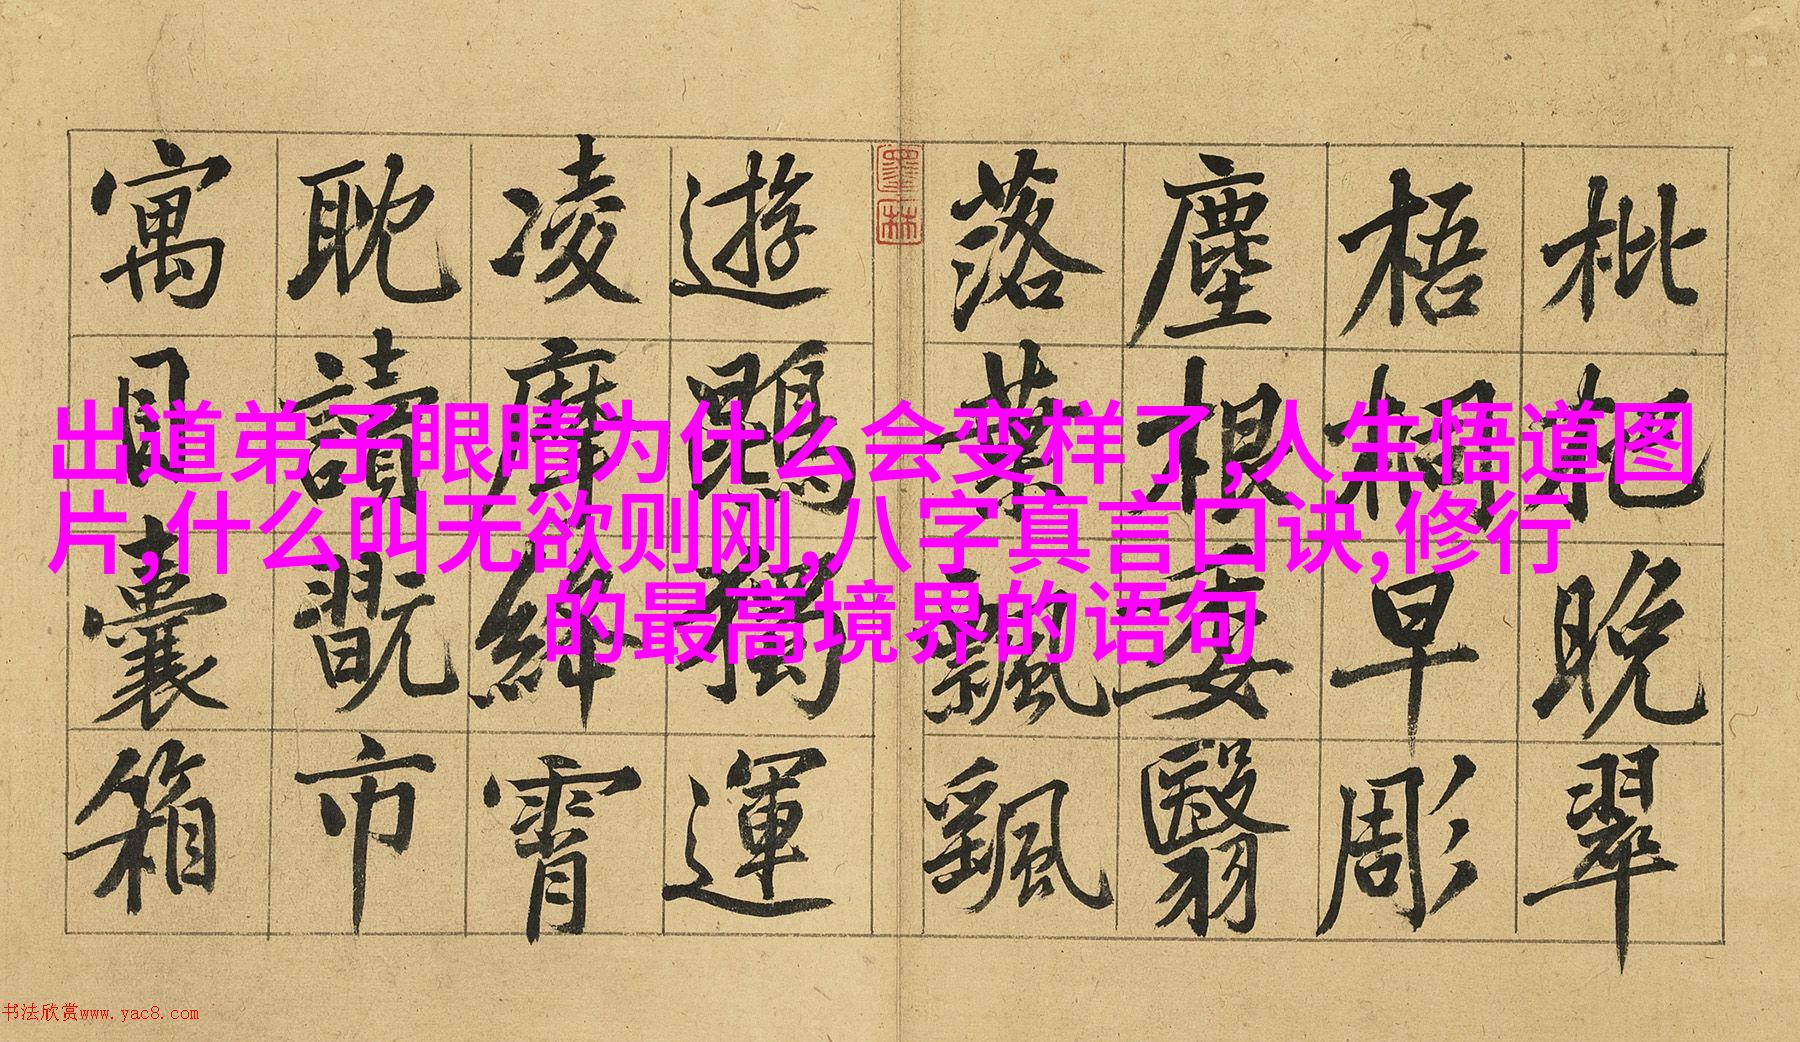 出道弟子眼睛为什么会变样了,人生悟道图
片,什么叫无欲则刚,八字真言口诀,修行
的最高境界的语句
枇杷晚翠
梧桐早彫
塵根委翳
落葉飄颻
墨林
遊鵾獨運
凌摩絳霄
耽讀翫市
寓目囊箱
书法欣赏www.yac8.com